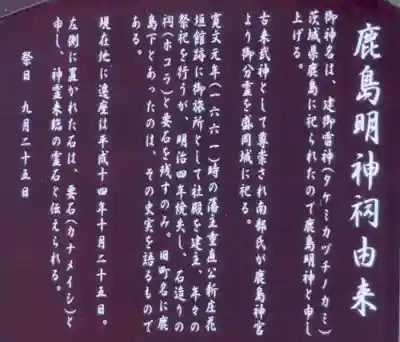 鹿島明神祠由来
御神名は、建御雷神(タケミカヅチノカミ)
茨城県鹿島に祀られたので鹿島明神と申し
上げる。
古来武神として尊崇され南部氏が鹿島神宮
より御分霊を盛岡城に祀る。
寛文元年(一六六一)時の藩主重直公新庄花
垣館跡に御旅所として社殿を建立、年々の
祭祀を行うが、明治四年焼失し、石造りの
祠(ホコラ)と要石を残すのみ。旧町名に鹿
島下とあったのは、その史実を語るもので
ある。
現在地に遷座は平成十四年十月二十五日。
左側に置かれた石は、要石(カナメイシ)と
申し、神霊来臨の霊石と伝えられる。
祭日 九月二十五日